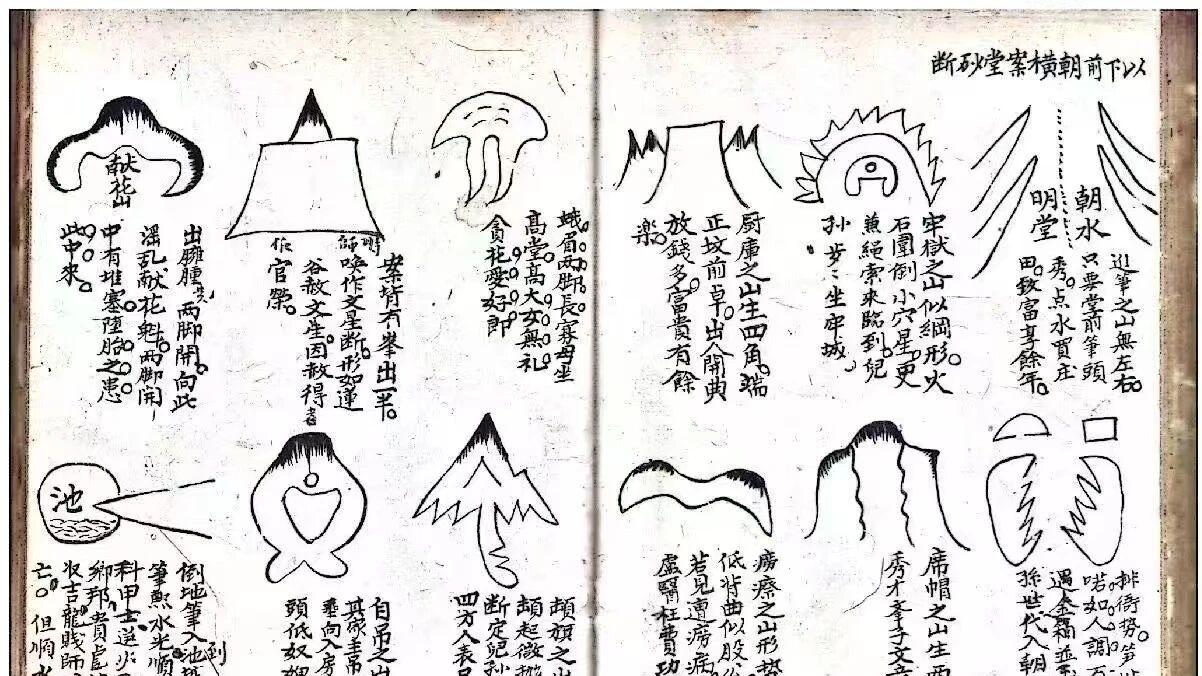 以下前朝横案堂砂断
朝水
明堂
逰筆之山無左右
只要堂前筆頭
秀点水買庄
田致富享餘年
牢獄之山似綱形火
石圍倒小穴星更
兼絕索來臨到兒
孫步々坐牢城
厨庫之山生四角端
正坟前卓出入開典
放錢多富貴有餘
樂
蛾眉兩脚長寡母坐
高堂高大女無礼
貪花愛好郎
案背有峯出一半
喚作文星断形如運
谷赦文生因赦得
官榮
献花山
出臃腫兩脚開向此
滛乱献花魁兩脚開
中有堆塞堕胎之患
此中來
排衙勢
喏如人調
遇金箱並
孫世代入朝
席帽之山生西
秀才峯子文章
痨瘵之山形勢
低背曲似股
若見遭痨病
盧醫枉費功
頭旗之
頭起微
断定兒孫
四方人表
自吊之山
其家主吊
垂向入房
頭低奴
池
倒地筆入池
筆熬水光順
科甲士進
鄉邦貴
収吉龍賤師
亡但順水